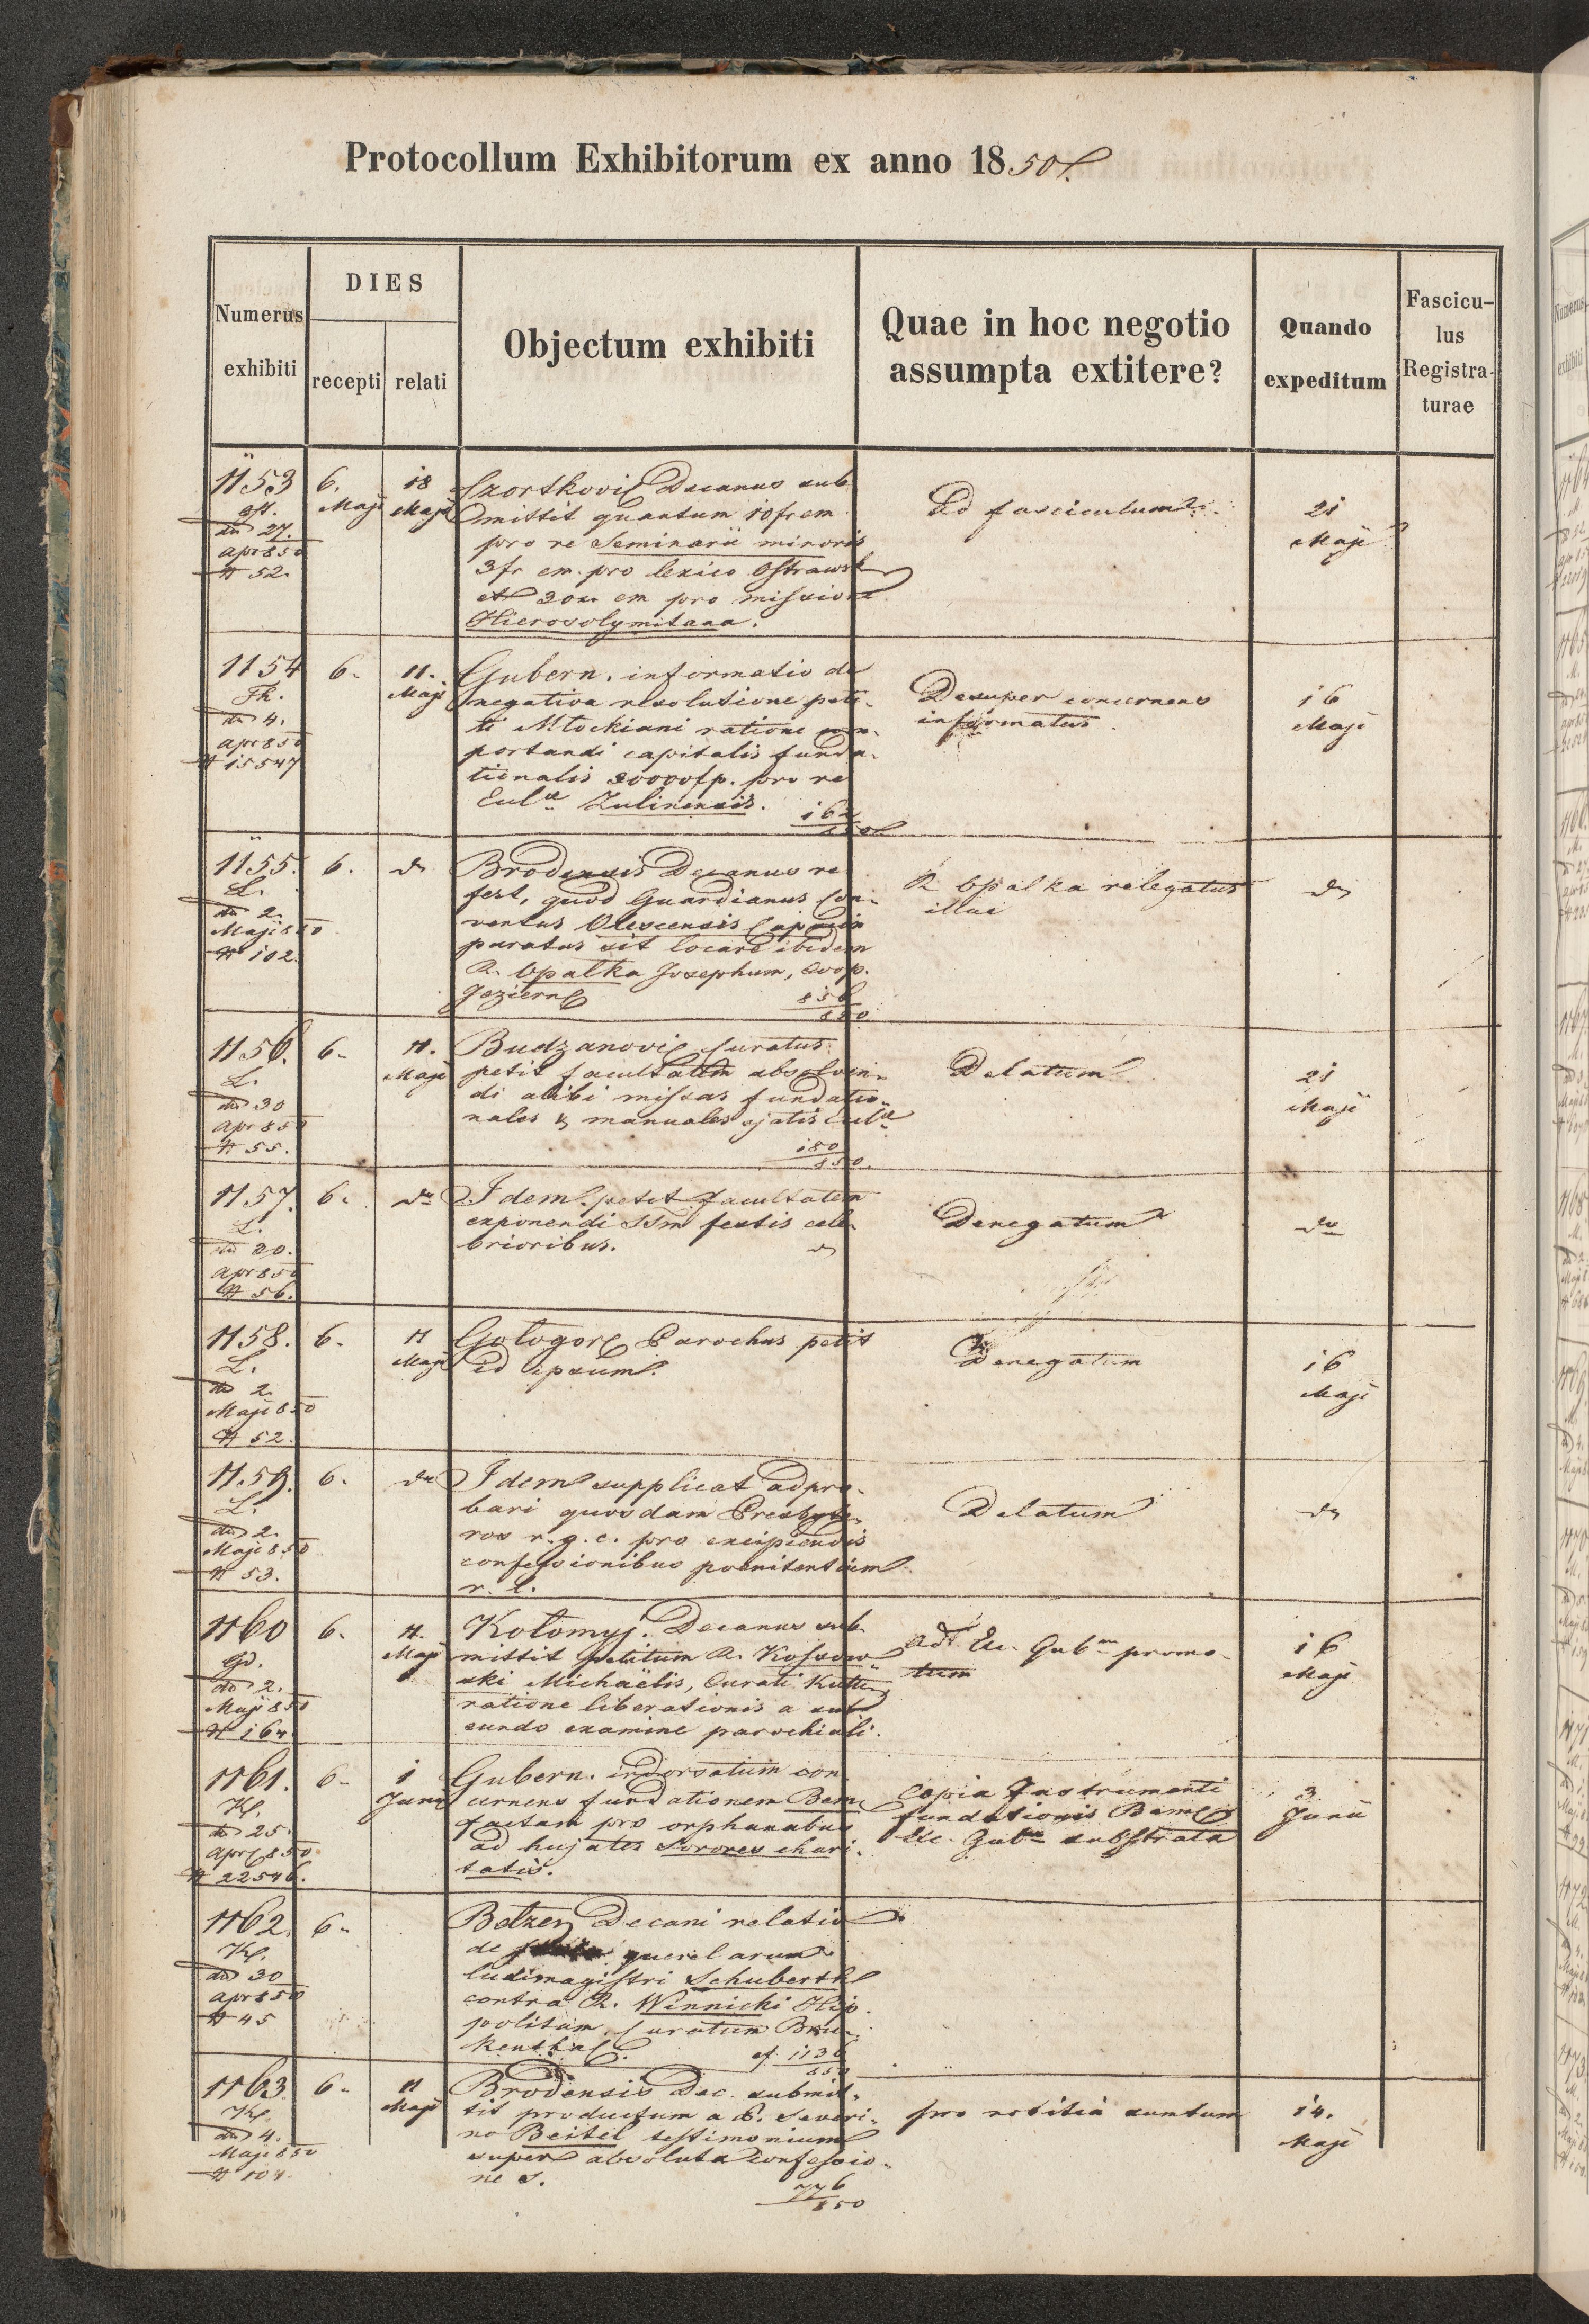 Protocollum Exhibitorum ex anno 1850.
Numerus exhibiti
DIES
recepti
relati
Objectum exhibiti
Quae in hoc negotio assumpta extitere?
Quando expeditum
Fascicu-
lus
Registra-
turae
1153
dto 27.
apr 850
N 52.
6.
Maji
18
Maji
Czortkovic Decanus sub
mittit quantum 10 fr em
pro re Seminarii minoris
3 fr em. pro lexico Ostrowsk
et 30 xr em pro missione
Hierosolymitana.
Ad fasciculum
21
Maji
1154
Th.
dto 4.
apr 850
N 15547
6.
11.
Maji
Gubern. informatio de
negativa resolutione peti-
ti Młockiani ratione
portandi capitalis funda-
tionalis 20000 fp. pro re
Eulae Zulinensis.
162
850
Desuper concernens
informatus.
16
Maji
1155.
L.
dto 2.
Maji 850
N 102.
6.
do
Brodensis Decanus re
fert, quod Guardianus Con-
ventus Olescensis Capucin
paratus sit locare ibidem
R. Opałka Josephum, Coop.
Jezierne
856
850
R. Opałka relegatus
illuc
do
1156.
L.
dto 30
apr 850
N 55.
6.
11.
Maji
Budzanovic Curatus
petit facultatem absolven-
di alibi missas fundatio-
nales & manuales ejatis Eulae
180
850.
Delatum
21
Maji
1157.
L.
dto 30.
apr 850
N 56.
6.
do
Idem petit facultatem
exponendi SSm festis cele
brioribus.
do
Denegatum
do
1158.
L.
dto 2.
Maji 850
N 52.
6.
11
Maji
Gołogore Parochus petit
id ipsum.
Denegatum
16
Maji
1159.
L.
dto 2.
Maji 850
N 53.
6.
do
Idem supplicat adpro-
bari quosdam Presbyte-
ros r. g. c. pro excipiendis
confessionibus poenitentium
r. l.
Delatum
do
1160
Gd.
dto 2.
Maji 850
N 164.
6.
11.
Maji
Kołomyj. Decanus sub
mittit petitum R. Kossow
ski Michaëlis, Curati Kutten
ratione liberationis a sub
eundo examine parochiali.
Ad Exc. Gubm promo-
tum
16
Maji
1161.
Kf.
dto 25.
Apr 850
N 22546.
6.
1
Junii
Gubern. indorsatum con
cernens fundationem Bem
factam pro orphanabus
ad hujates Sorores chari-
tatis.
Copia Instrumenti
fundationis
Exc. Gubm substrata
3
Junii
1162.
Kf.
dto 30
apr 850
N 45
6.
Bełzen Decani relatio
de querelarum
ludimagistri Schuberth
contra R. Winnicki Hip
politum Curatum Bru-
kenthal.
cf. 1136
850
1163.
Kf.
dto 4.
Maji 850
N 104.
6.
11
Maji
Brodensis Dec. submit-
tit productum a P. Severi-
no Beitel testimonium
super absoluta confessio-
ne s.
776
850
pro notitia sumtum
14.
Maji